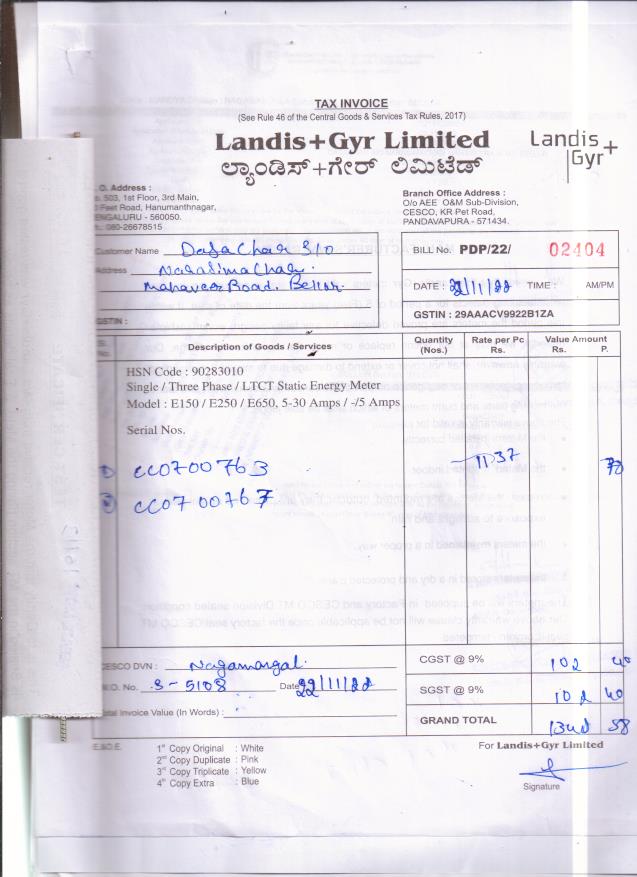 TAX INVOICE
(See Rule 46 of the Central Goods & Services Tax Rules, 2017)
Landis+Gyr Limited
ಲ್ಯಾಂಡಿಸ್+ಗೇರ್ ಲಿಮಿಟೆಡ್
Landis+
Gyr
O. Address :
503, 1st Floor, 3rd Main,
Feet Road, Hanumanthnagar,
ENGALURU - 560050.
080-26678515
Branch Office Address :
O/o AEE O&M Sub-Division,
CESCO, KR Pet Road,
PANDAVAPURA - 571434.
Customer Name
S/o
Address
Road. Bellur.
GSTIN :
BILL No. PDP/22/ 02404
DATE : 22/11/22 TIME : AM/PM
GSTIN : 29AAACV9922B1ZA
No. Description of Goods / Services Quantity (Nos.) Rate per Pc Rs. Value Amount Rs. P.
HSN Code : 90283010
Single / Three Phase / LTCT Static Energy Meter
Model : E150 / E250 / E650, 5-30 Amps / -/5 Amps
Serial Nos.
CC0700763 1137
CC0700767
CESCO DVN : Nagamangal.
W.O. No. S-5108 Date 22/11/22
Total Invoice Value (In Words) :
CGST @ 9% 102 40
SGST @ 9% 102 40
GRAND TOTAL 58
E.&O.E.
1st Copy Original : White
2nd Copy Duplicate : Pink
3rd Copy Triplicate : Yellow
4th Copy Extra : Blue
For Landis+Gyr Limited
Signature